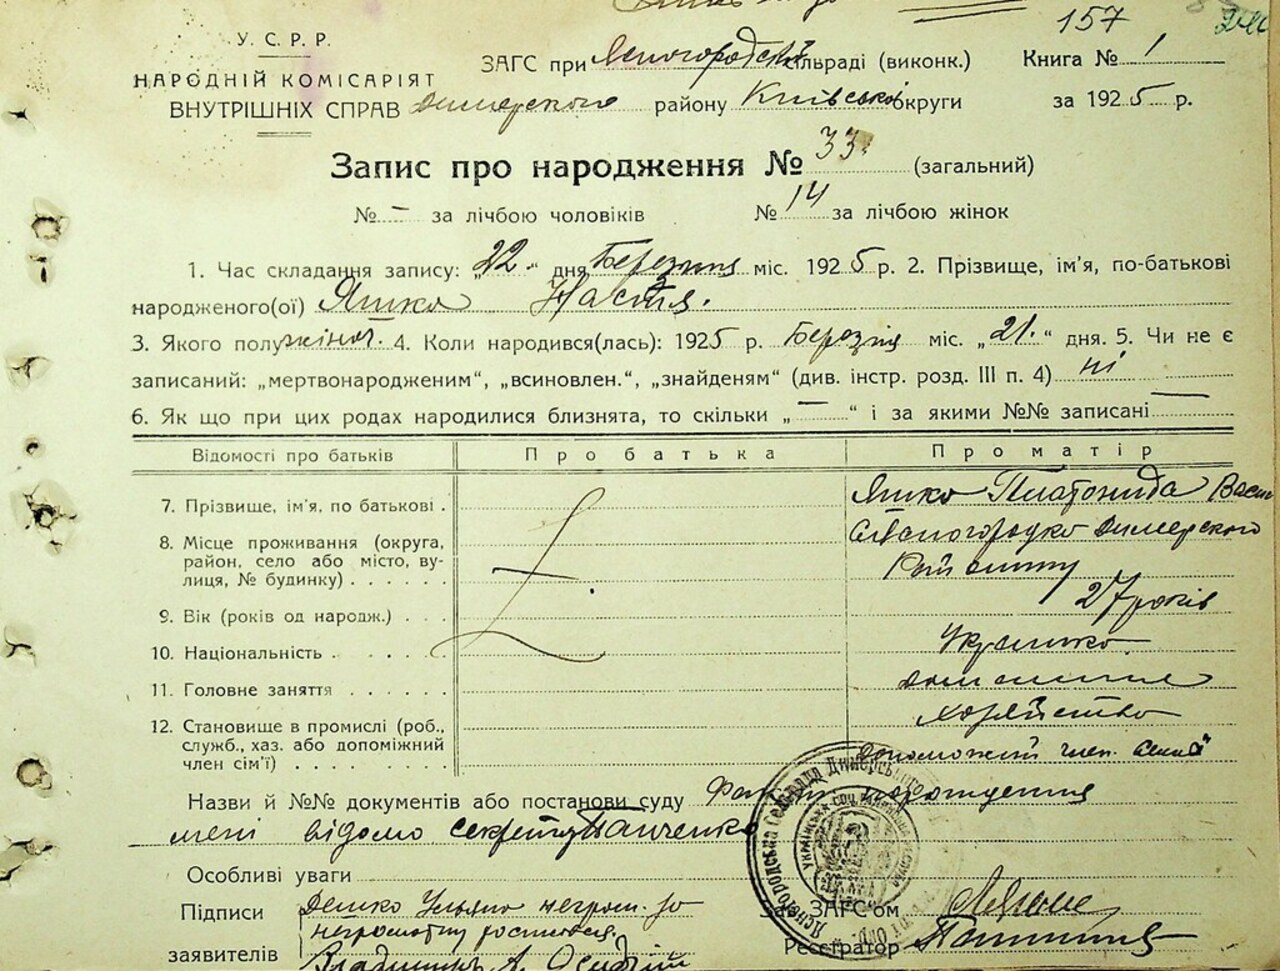 157
У. С. Р. Р.
НАРОДНІЙ КОМІСАРІЯТ
ВНУТРІШНІХ СПРАВ
ЗАГС при Ясногородській сільраді (виконк.) Книга № 1
Димерского району Київської округи за 1925 р.
Запис про народження № 33 (загальний)
№ – за лічбою чоловіків № 14 за лічбою жінок
1. Час складання запису: „22“ дня Березня міс. 1925 р. 2. Прізвище, ім'я, по-батькові
народженого(ої) Яшко Настя.
3. Якого полу жіноч. 4. Коли народився(лась): 1925 р. Березня міс. „21.“ дня. 5. Чи не є
записаний: „мертвонародженим“, „всиновлен.“, „знайденям“ (див. інстр. розд. III п. 4) ні
6. Як що при цих родах народилися близнята, то скільки „—“ і за якими №№ записані —
Відомості про батьків Про батька Про матір
7. Прізвище, ім'я, по батькові . Яшко Платонида Васи
8. Місце проживання (округа, район, село або місто, вулиця, № будинку) . . . . . . Ясногородка Димерского
Району
9. Вік (років од народж.) . . 27 років
10. Національність . . . . . . Українка
11. Головне заняття . . . . . . домашнє
хозяйство
12. Становище в промислі (роб., служб., хаз. або допоміжний член сім'ї) . . . . . . . . допоможий член семьи
Назви й №№ документів або постанови суду Факт нарождения
мені відомо секрет Панченко
Особливі уваги
Підписи
заявителів
Яшко Ульяна негром. за
неграмотну росписався.
Зав. ЗАГС'ом
Реєстратор
Ясногородська Сельрада Димерського